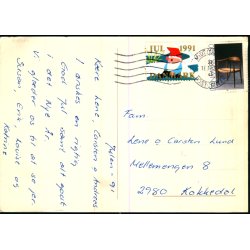 Julen - 91
Kære Lene, Carsten & Andreas
I ønskes en rigtig
God Jul samt alt godt
i det nye år.
Vi glæder os til at se jer.
Katrine
JUL 1991
DANMARK
Fam
Lene & Carsten Lund
Mellemengen 8
2980 Kokkedal